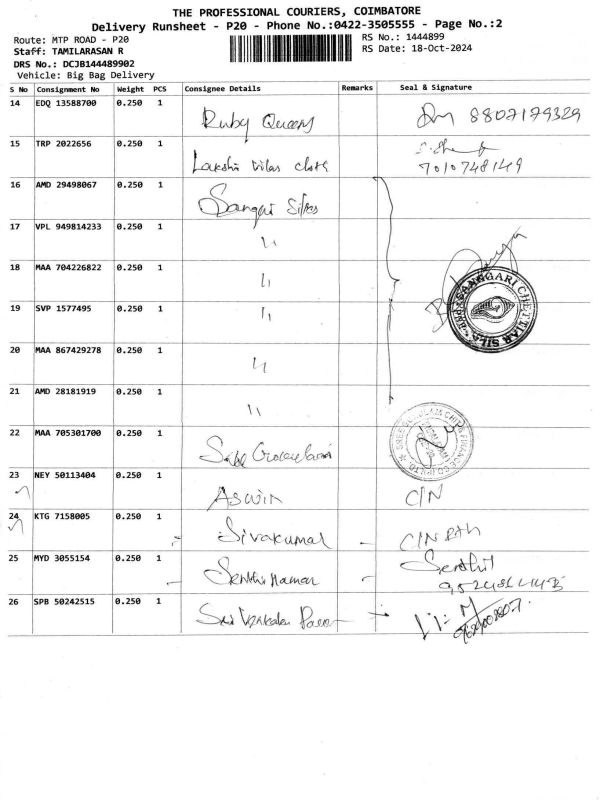 THE PROFESSIONAL COURIERS, COIMBATORE
Delivery Runsheet - P20 - Phone No.:0422-3505555 - Page No.:2
Route: MTP ROAD - P20 RS No.: 1444899
Staff: TAMILARASAN R RS Date: 18-Oct-2024
DRS No.: DCJB144489902
Vehicle: Big Bag Delivery
S No Consignment No Weight PCS Consignee Details Remarks Seal & Signature
14 EDQ 13588700 0.250 1 Ruby Queens 8807179329
15 TRP 2022656 0.250 1 Lakshi Vilas cloth 7010748149
16 AMD 29498067 0.250 1 Sangari Silks
17 VPL 949814233 0.250 1 "
18 MAA 704226822 0.250 1 "
19 SVP 1577495 0.250 1 "
20 MAA 867429278 0.250 1 "
21 AMD 28181919 0.250 1 "
22 MAA 705301700 0.250 1
23 NEY 50113404 0.250 1 Aswin CIN
24 KTG 7158005 0.250 1 Sivakumar CIN
25 MYD 3055154 0.250 1 Senthil
26 SPB 50242515 0.250 1 Sri